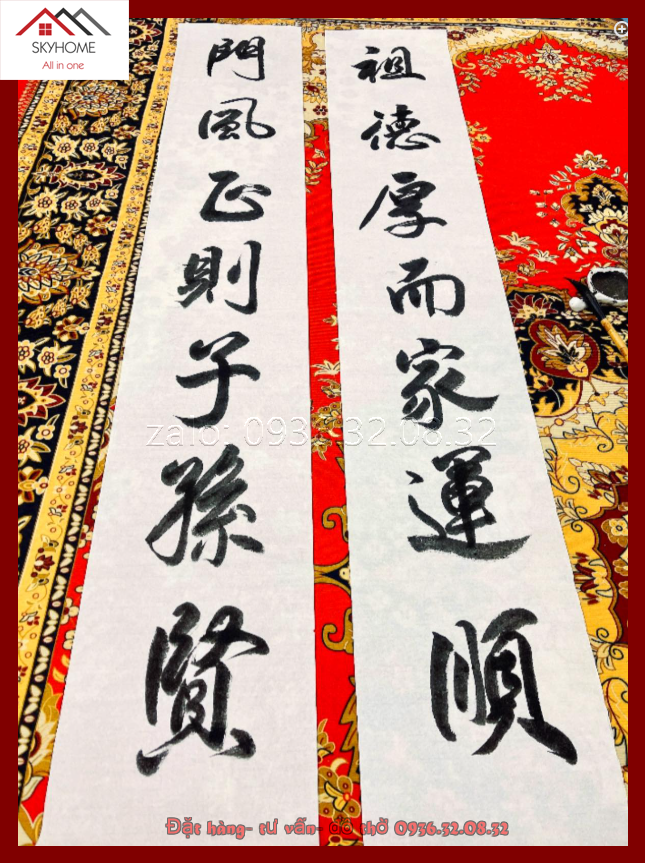 SKYHOME
All in one
祖德厚而家運順
門風正則子孫賢
zalo: 0936.32.08.32
Đặc hàng- tư vấn- đồ thờ 0936.32.08.32